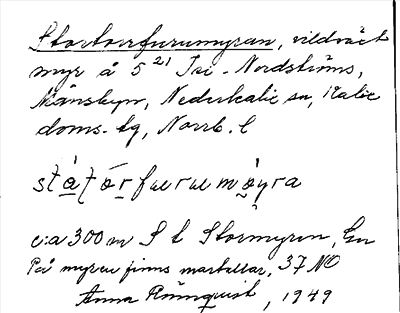 Stortorrfurumyran, vildväxt
myr å 5²¹ Isi - Nordströms,
Månsbyn, Nederkalix sn, Kalix
doms. tg, Norrb. l
c:a 300 m S t Stormyren, Gu
På myren finns martallar, 37 NO
Anna Rönnquist, 1949